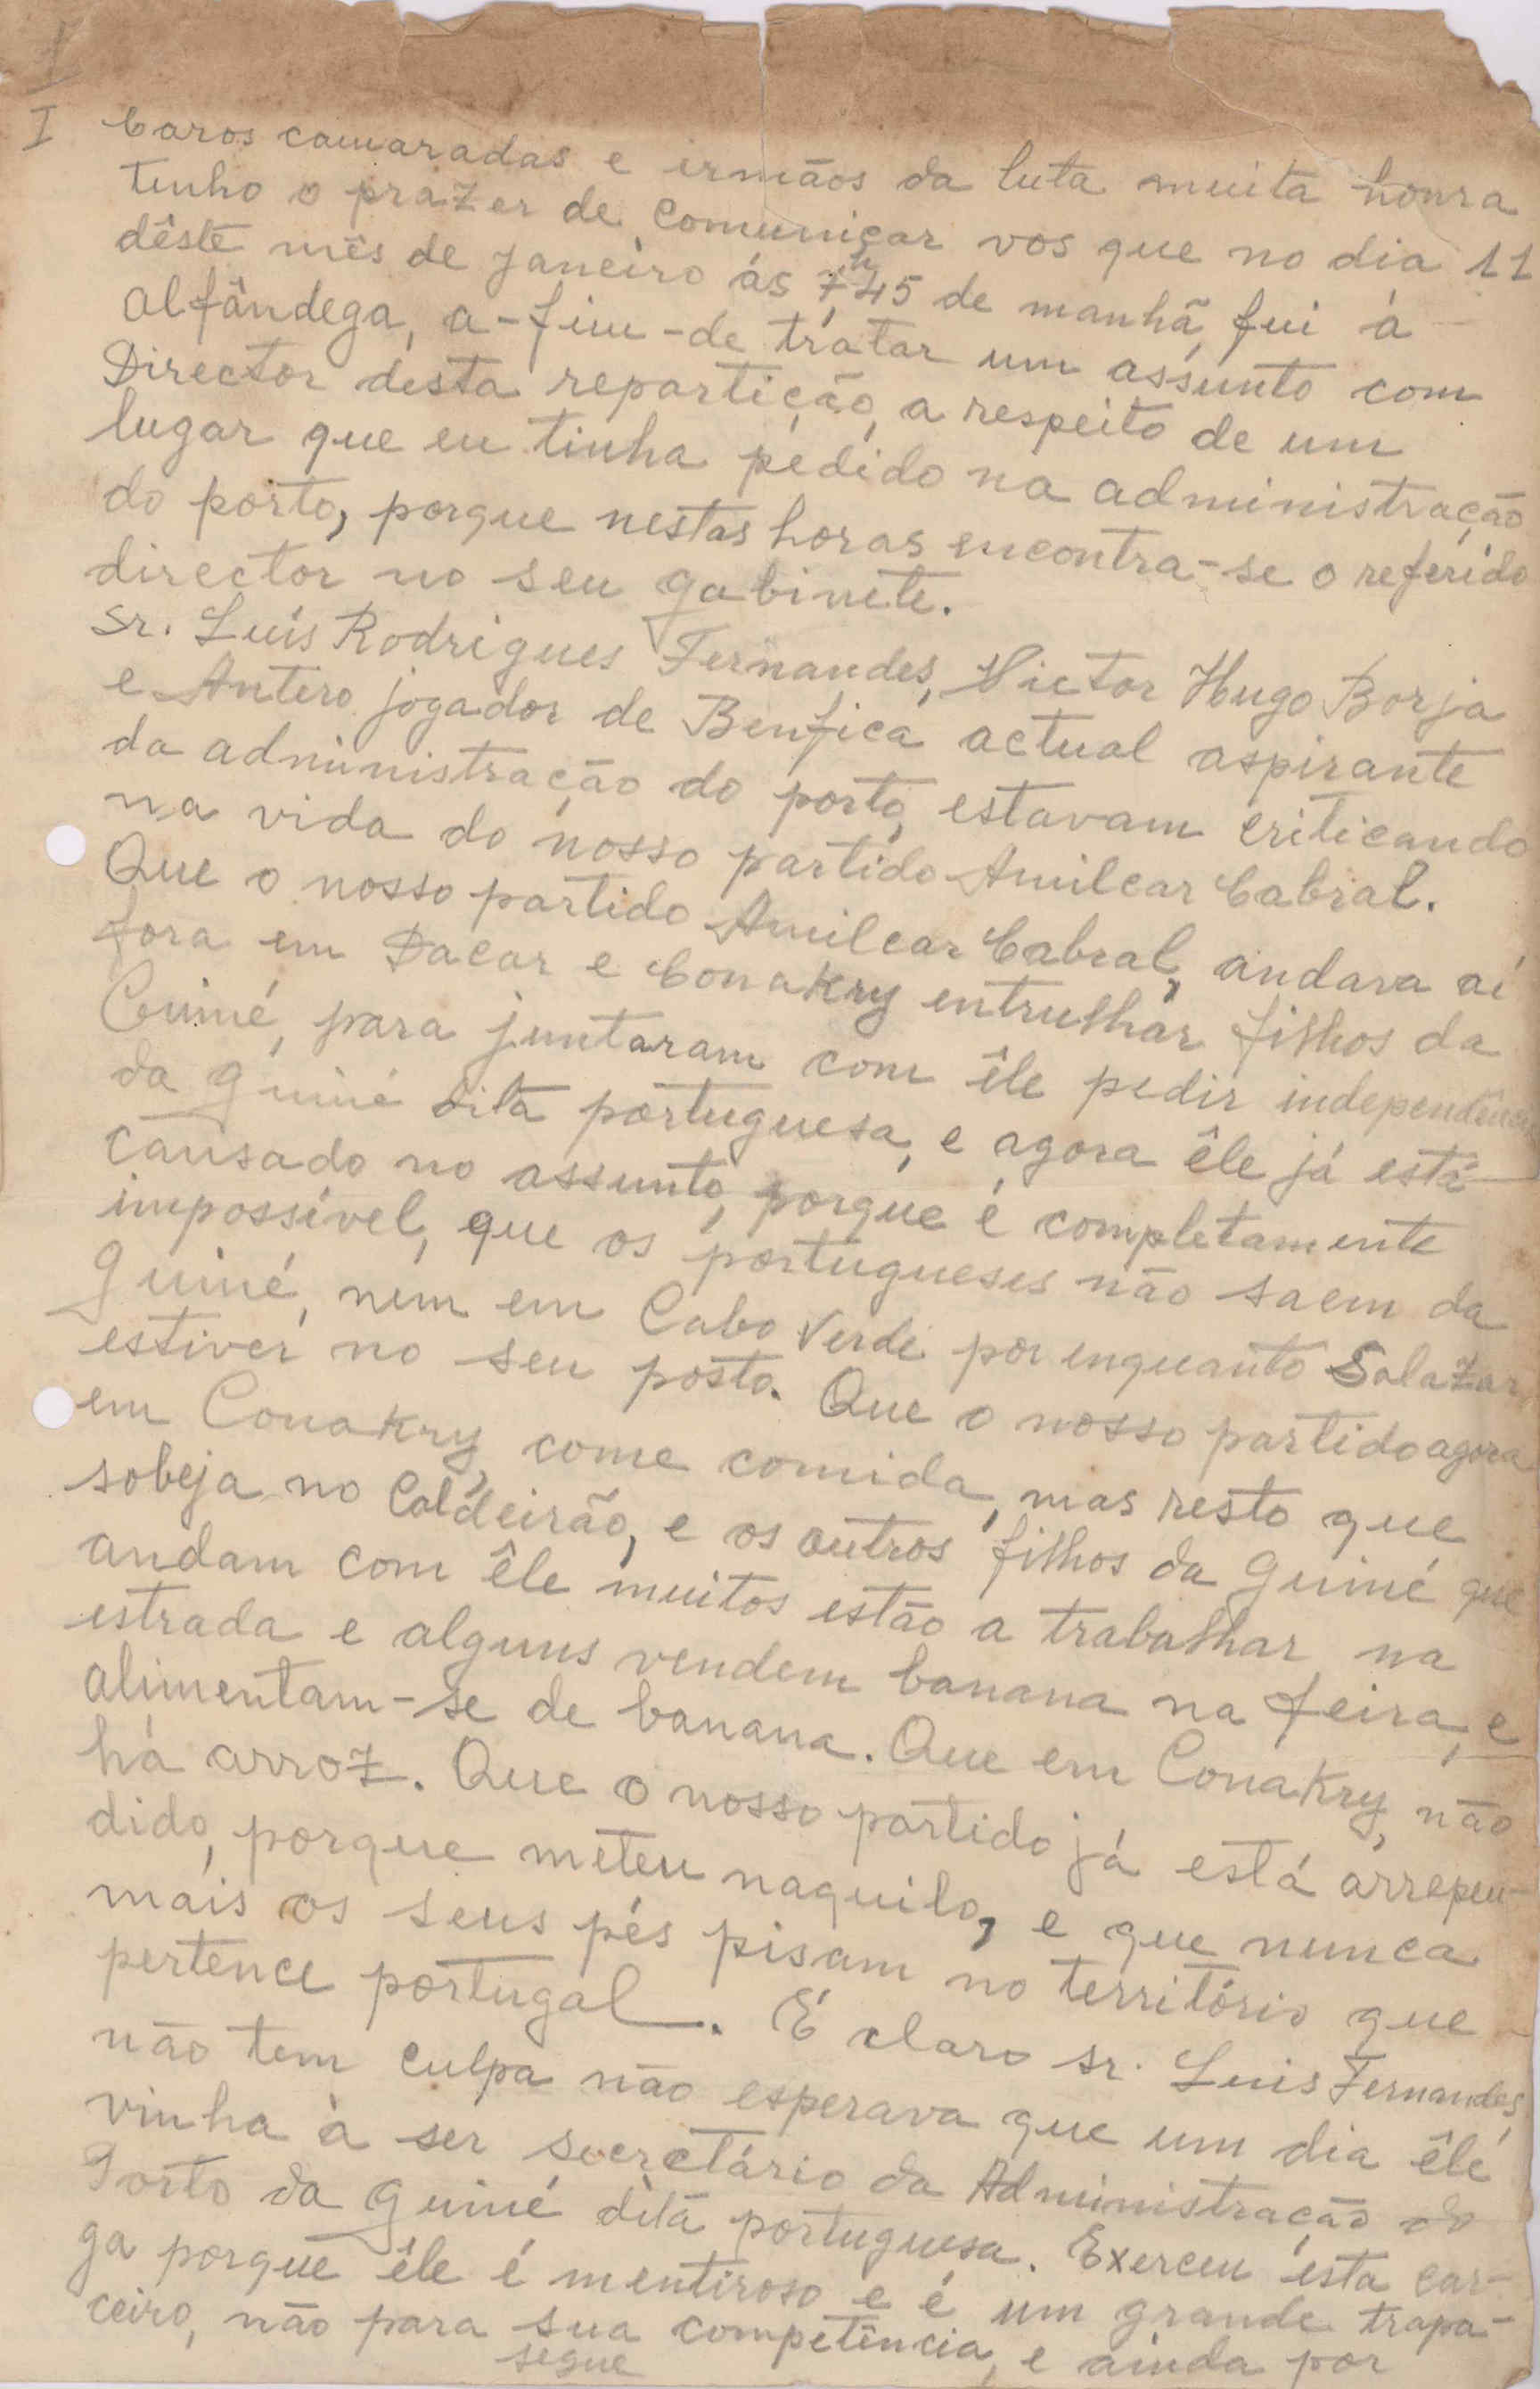 I
Caros camaradas e irmãos da luta muita honra
tenho o prazer de comunicar vos que no dia 11
dêste mês de janeiro ás 7,h45 de manhã, fui à
Alfândega, a-fim-de tratar um assunto com
Director desta repartição, a respeito de um
lugar que eu tinha pedido na administração
do porto, porque nestas horas encontra-se o referido
director no seu gabinete.
Sr. Luís Rodrigues Fernandes, Victor Hugo Borja
e Antero jogador de Benfica actual aspirante
da administração do porto, estavam criticando
na vida do nosso partido Amilcar Cabral.
Que o nosso partido Amilcar Cabral, andava aí
fora em Dacar e Conakry entrulhar filhos da
Guiné, para juntaram com êle pedir independência
da guiné dita portuguesa, e agora êle já está
cansado no assunto, porque é completamente
impossível, que os portugueses não saem da
guiné, nem em Cabo Verde por enquanto Salazar,
estiver no seu posto. Que o nosso partido agora
em Conakry, come comida, mas resto que
sobeja no Caldeirão, e os outros filhos da guiné que
andam com êle muitos estão a trabalhar na
estrada e alguns vendem banana na feira, e
alimentam-se de banana. Que em Conakry, não
há arroz. Que o nosso partido já está arrepen-
dido, porque meteu naquilo, e que nunca
mais os seus pés pisam no território que
pertence portugal. É claro sr. Luis Fernandes,
não tem culpa não esperava que um dia êle
vinha à ser secretário da Administração do
Porto da guiné dita portuguesa. Exerceu esta car-
ga porque êle é mentiroso e é um grande trapa-
ceiro, não para sua competência, e ainda por
segue